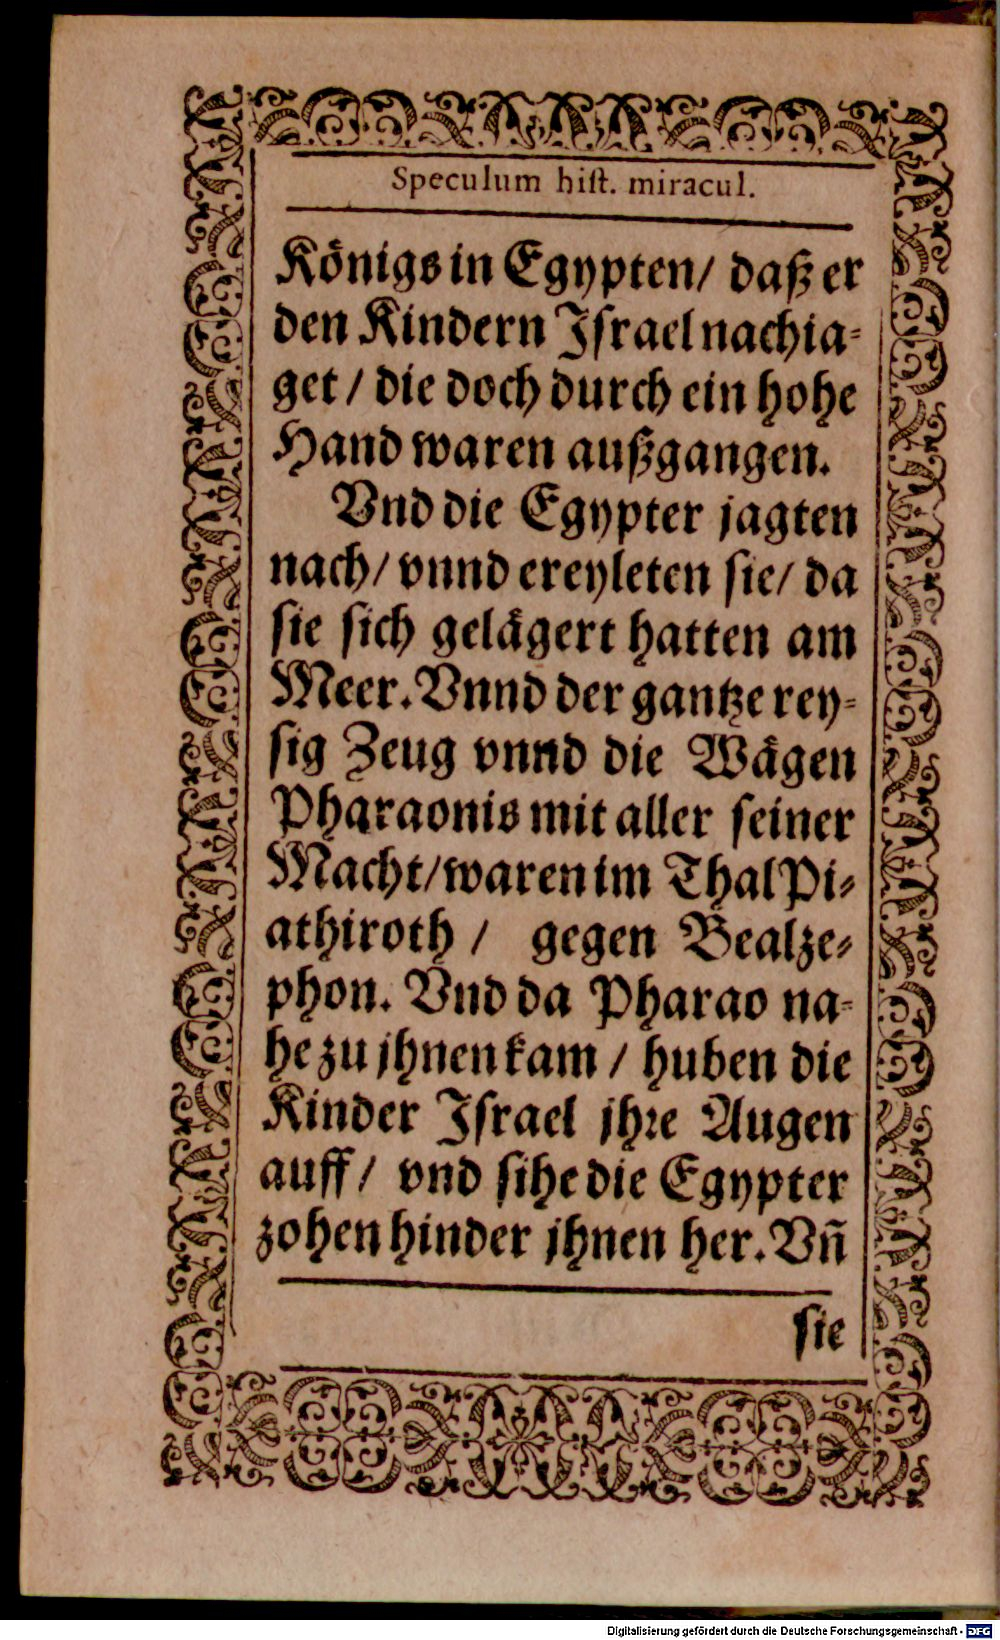 Speculum hist. miracul.
Königs in Egypten/ daß er
den Kindern Israel nachia⸗
get/ die doch durch ein hohe
Hand waren außgangen.
Vnd die Egypter jagten
nach/ vnnd ereyleten sie/ da
sie sich gelägert hatten am
Meer. Vnnd der gantze rey⸗
sig Zeug vnnd die Wägen
Pharaonis mit aller seiner
Macht/ waren im Thal Pi⸗
athiroth / gegen Bealze⸗
phon. Vnd da Pharao na⸗
he zu jhnen kam / huben die
Kinder Israel jhre Augen
auff/ vnd sihe die Egypter
zohen hinder jhnen her. Vñ
sie
Digitalisierung gefördert durch die Deutsche Forschungsgemeinschaft - DFG